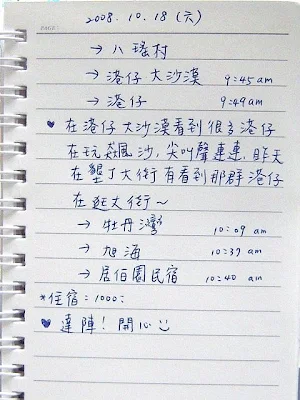 PAGE:
2008. 10. 18 (六)
→ 八瑤村
→ 港仔大沙漠 9:45 am
→ 港仔 9:49 am
♥ 在港仔大沙漠看到很多港仔
在玩飆風沙,尖叫聲連連,昨天
在墾丁大街有看到那群港仔
在逛大街~
→ 牡丹灣 10:09 am
→ 旭海 10:37 am
→ 居佰園民宿 10:40 am
*住宿:1000:
♥ 達陣!開心